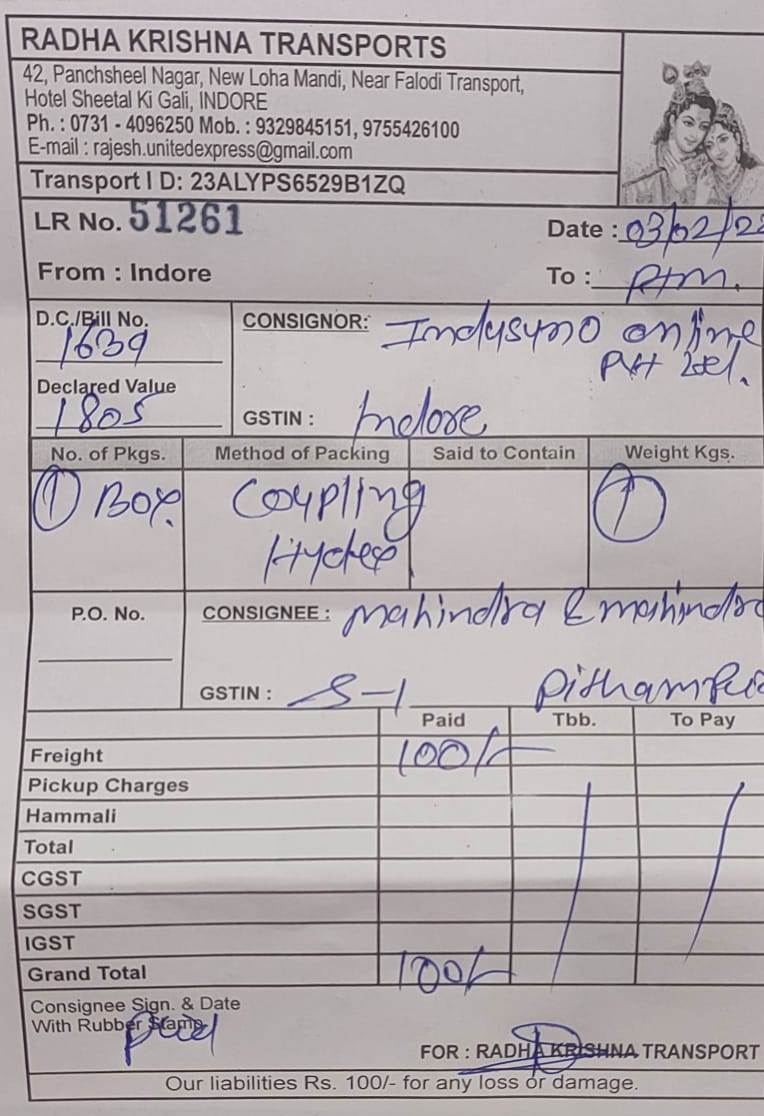 RADHA KRISHNA TRANSPORTS
42, Panchsheel Nagar, New Loha Mandi, Near Falodi Transport,
Hotel Sheetal Ki Gali, INDORE
Ph. : 0731 - 4096250 Mob. : 9329845151, 9755426100
E-mail : rajesh.unitedexpress@gmail.com
Transport I D: 23ALYPS6529B1ZQ
LR No. 51261
Date : 03/02/22
From : Indore
To : Ptm.
D.C./Bill No.
1639
CONSIGNOR: Indusyno online
Pvt Ltd.
Declared Value
1805
GSTIN : Indore
No. of Pkgs. Method of Packing Said to Contain Weight Kgs.
1 Box Coupling 1
P.O. No. CONSIGNEE : Mahindra & mahindra
GSTIN : S-1 Pitham
Paid Tbb. To Pay
Freight 100/-
Pickup Charges
Hammali
Total
CGST
SGST
IGST
Grand Total 100/-
Consignee Sign. & Date
With Rubber Stamp
Paid
FOR : RADHA KRISHNA TRANSPORT
Our liabilities Rs. 100/- for any loss or damage.